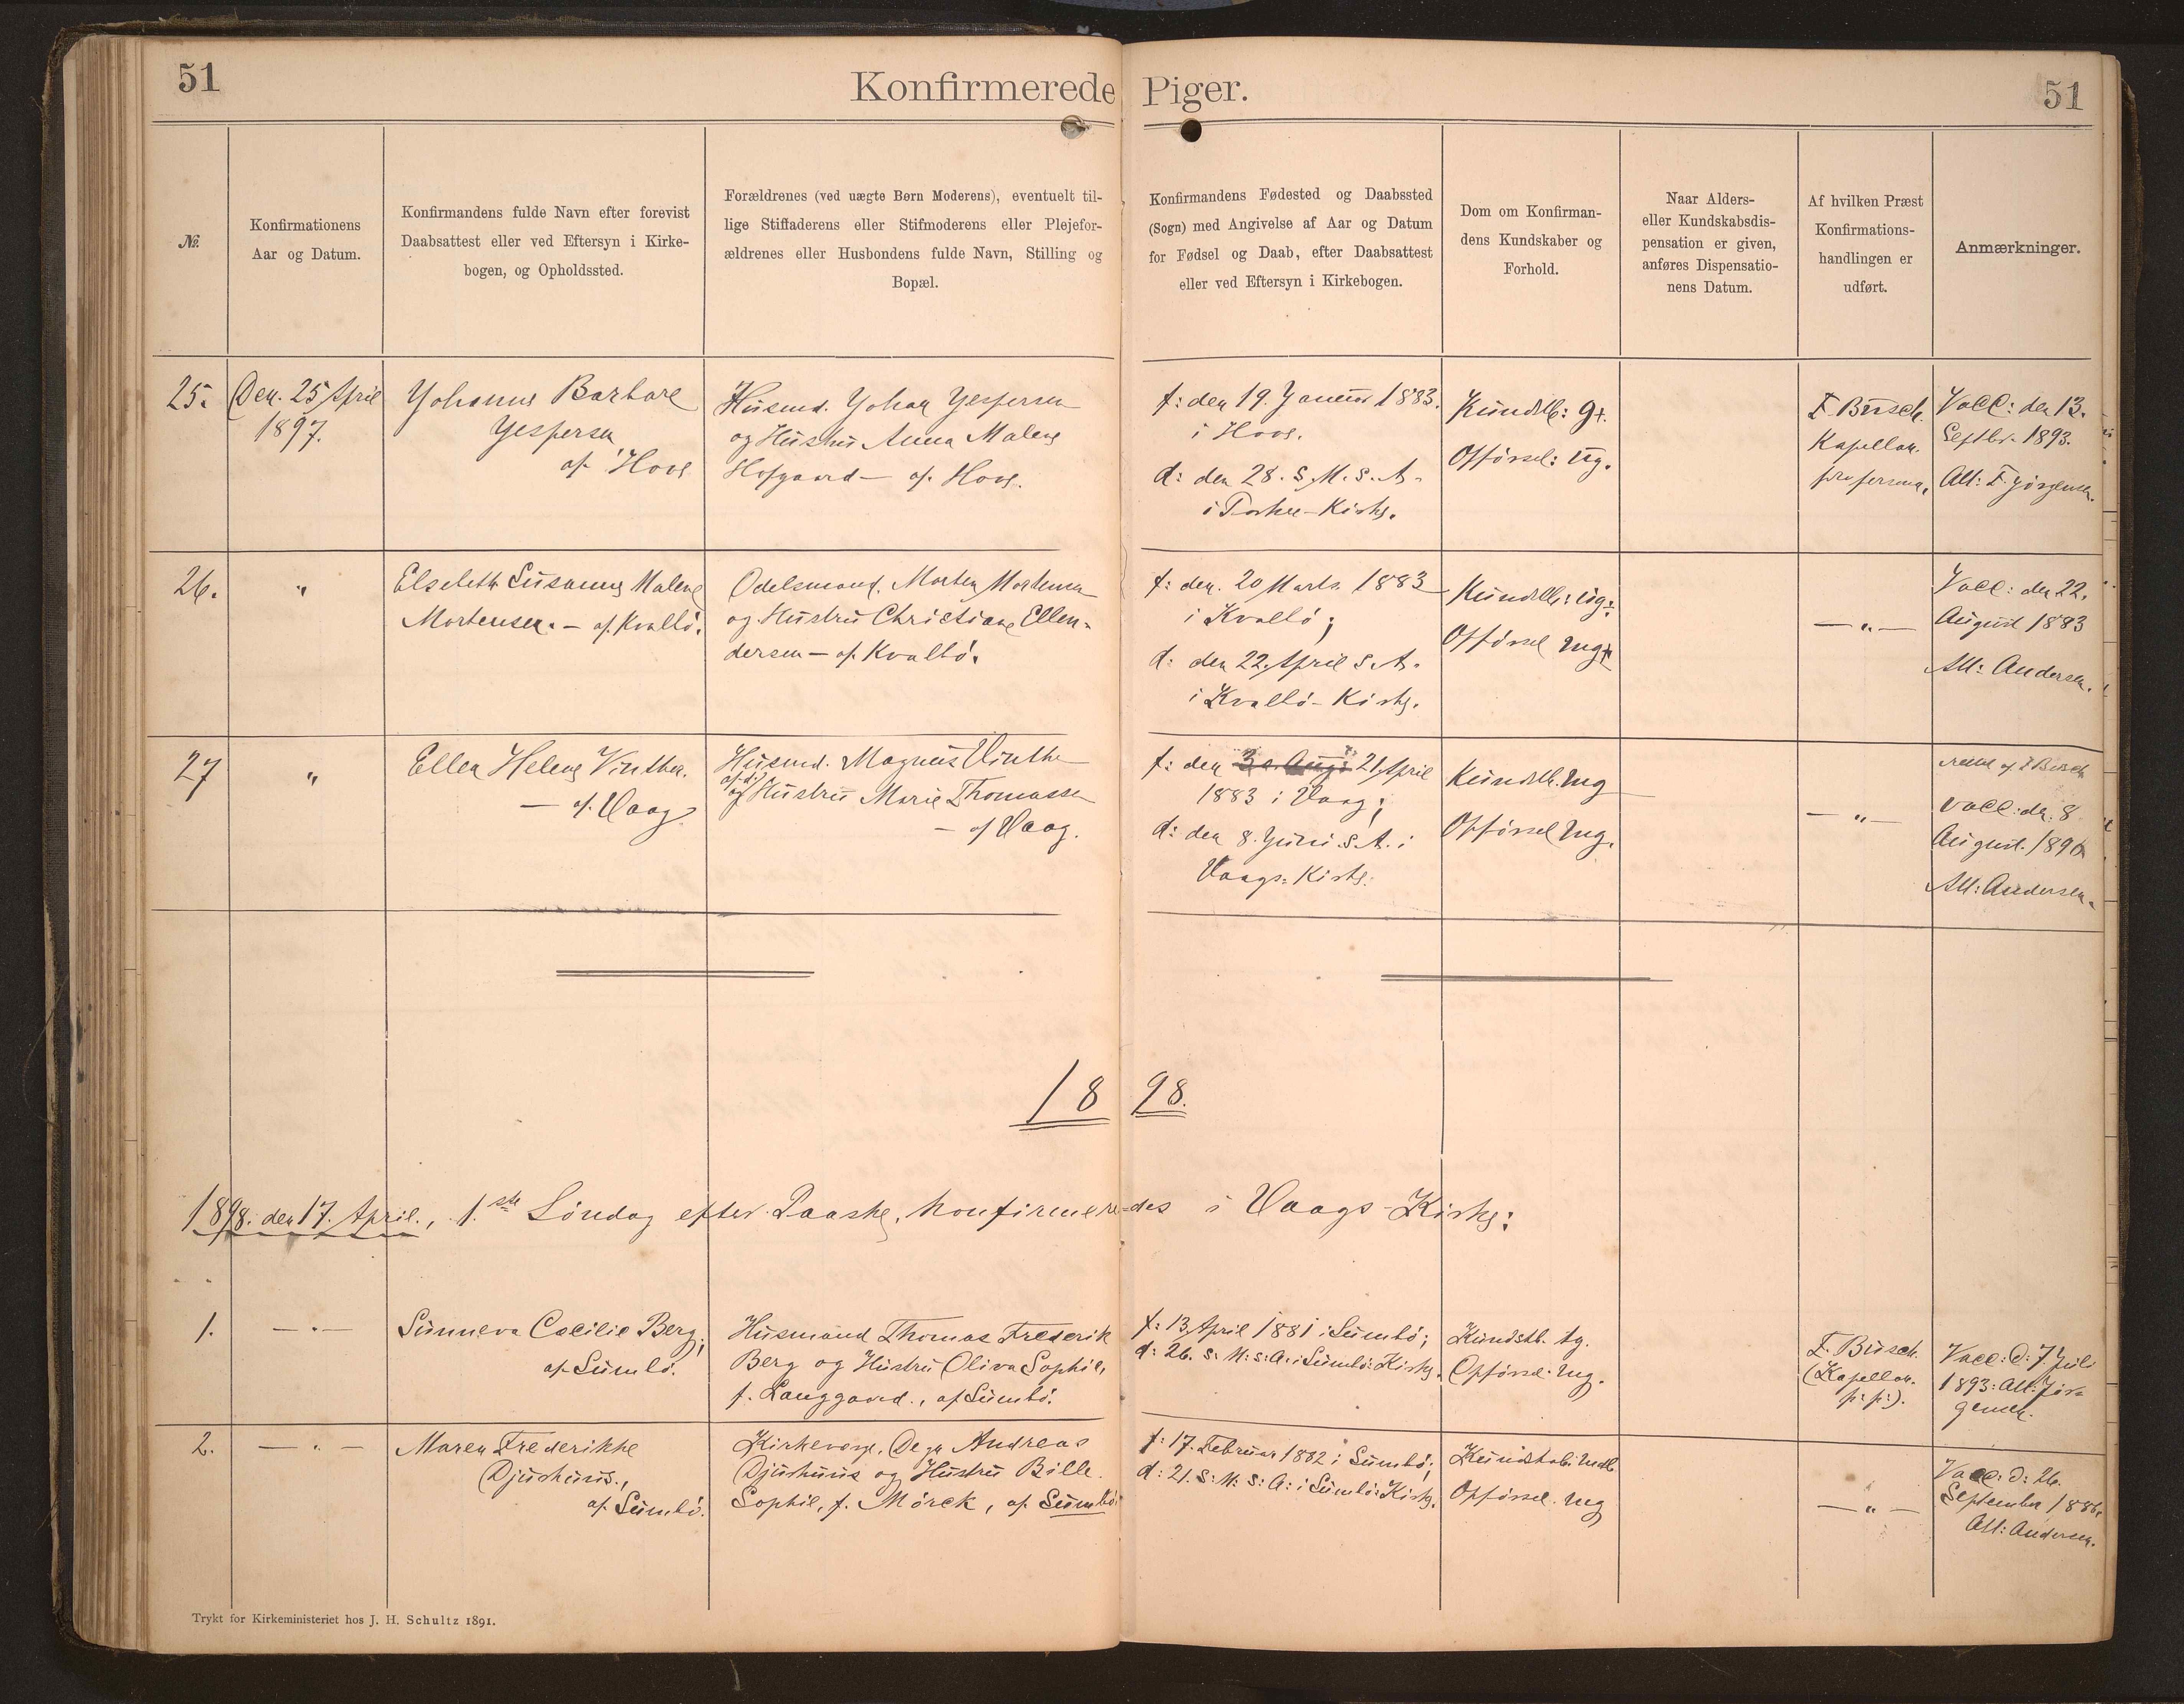 51
Konfirmerede Piger.
51
№
Konfirmationens
Aar og Datum.
Konfirmandens fulde Navn efter forevist
Daabsattest eller ved Eftersyn i Kirke-
bogen, og Opholdssted.
Forældrenes (ved uægte Børn Moderens), eventuelt til-
lige Stiffaderens eller Stifmoderens eller Plejefor-
ældrenes eller Husbondens fulde Navn, Stilling og
Bopæl.
Konfirmandens Fødested og Daabssted
(Sogn) med Angivelse af Aar og Datum
for Fødsel og Daab, efter Daabsattest
eller ved Eftersyn i Kirkebogen.
Dom om Konfirman-
dens Kundskaber og
Forhold.
Naar Alders-
eller Kundskabsdis-
pensation er given,
anføres Dispensatio-
nens Datum.
Af hvilken Præst
Konfirmations-
handlingen er
udført.
Anmærkninger.
25.
Den 25 April
1897.
Johanne Barbare
Jespersen
af Hove
Husmd. Johan Jespersen
og Hustru Anna Malene
Hofgaard – af Hove.
f: den 19. Januar 1883.
i Hove.
d: den 28. s. M. s. A.
i Porkere-Kirke.
Kundsk: g+.
Opførsel: ug.
F. Busch.
Kapellan
pro persona.
Vacc: den 13.
Septbr. 1893.
Att: F. Jörgensen.
26.
"
Elsebeth Susanne Malene
Mortensen. – af Kvalbö.
Odelsmand. Morten Mortensen
og Hustru Christiane Ellen-
dersen – af Kvalbö.
f: den. 20 Marts 1883
i Kvalbö;
d: den 22. April s. A.
i Kvalbö-Kirke.
Kundsk: ug÷
Opförsel mg+
– " –
Vacc: den 22.
August 1883
Att: Andersen.
27
"
Ellen Helene Vinther.
– af Vaag
Husmd. Magnus Vinther
og Hustru Marie Thomassen
– af Vaag.
f: den 21. April
1883 i Vaag;
d: den 8. Juni s. A. i
Vaags-Kirke.
Kundsk. mg
Opförsel mg.
– " –
rettet af F Busch
Vacc: dn: 8
August. 1890
Att: Andersen.
1898.
1898. den 17. April., 1.ste Söndag efter Paaske, konfirmere-des i Vaags-Kirke:
1.
– " –
Sunneva Cæcilie Berg;
af Sumbö.
Husmand Thomas Frederik
Berg og Hustru Oliva Sophie,
f. Langgaard., af Sumbö.
f: 13. April 1881 i Sumbö;
d: 26. s: M: s: A: i Sumbö: Kirke.
Kundsk. tg.
Opförsel: mg.
F. Busch.
(Kapellan.
p: p:).
Vacc: d: 7 Juli
1893: Att: Jör-
gensen.
2.
– " –
Maren Frederikke
Djurhuus.,
af Sumbö.
Kirkeværge. Degn Andreas
Djurhuus og Hustru Bille
Sophie, f. Mörck, af Sumbö.
f: 17. Februar 1882 i Sumbö;
d: 21. s: M: s: A: i Sumbö: Kirke.
Kundskab: mdl
Opförsel. mg
– " –
Vacc: d: 26.
September 1886.
Att: Andersen.
Trykt for Kirkeministeriet hos J. H. Schultz 1891.